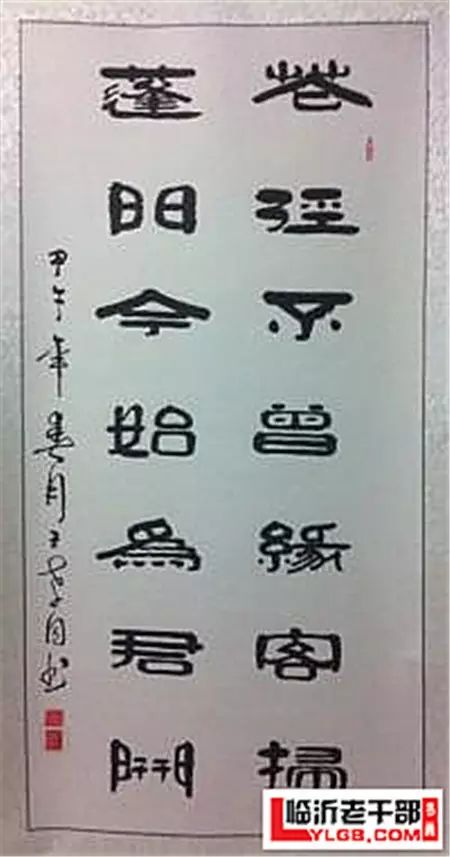 花徑不曾緣客掃
蓬門今始為君開
甲午年春月
临沂老干部
LYLGB.COM